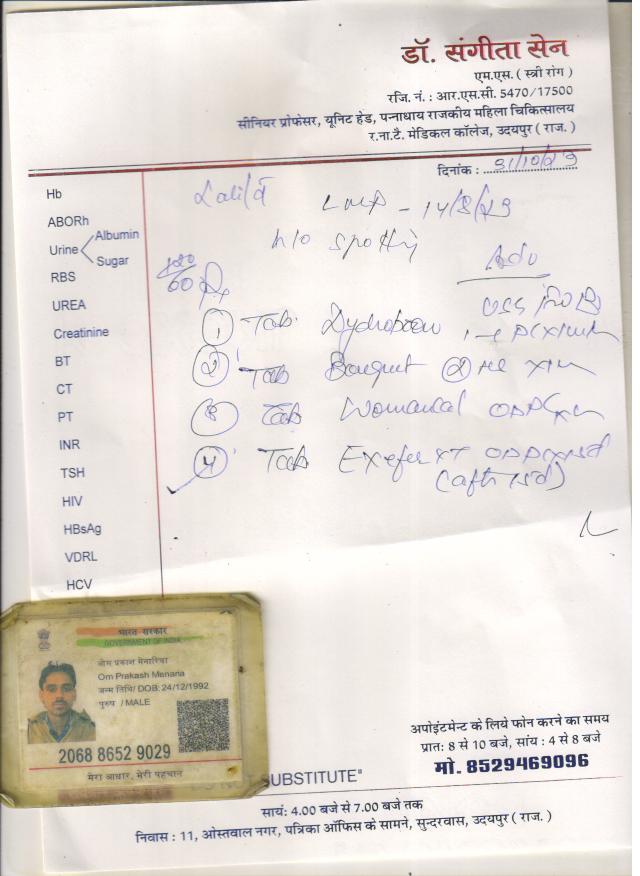 डॉ. संगीता सेन
एम.एस. ( स्त्री रोग )
रजि. नं. : आर.एस.सी. 5470/17500
सीनियर प्रोफेसर, यूनिट हेड, पन्नाधाय राजकीय महिला चिकित्सालय
र.ना.टै. मेडिकल कॉलेज, उदयपुर ( राज. )
दिनांक : 31/10/23
Hb
ABORh
Urine Albumin
Sugar
RBS
UREA
Creatinine
BT
CT
PT
INR
TSH
HIV
HBsAg
VDRL
HCV
LMP - 14/8/23
h/o spotting
Adv
1 Tab
2 Tab Bouquet
3 Tab
4 Tab Exefer XT
भारत सरकार
GOVERNMENT OF INDIA
ओम प्रकाश मेनारिया
Om Prakash Menaria
जन्म तिथि/ DOB: 24/12/1992
पुरुष / MALE
2068 8652 9029
मेरा आधार, मेरी पहचान
SUBSTITUTE"
अपोइंटमेन्ट के लिये फोन करने का समय
प्रात: 8 से 10 बजे, सांय : 4 से 8 बजे
मो. 8529469096
सायं: 4.00 बजे से 7.00 बजे तक
निवास : 11, ओस्तवाल नगर, पत्रिका ऑफिस के सामने, सुन्दरवास, उदयपुर ( राज. )